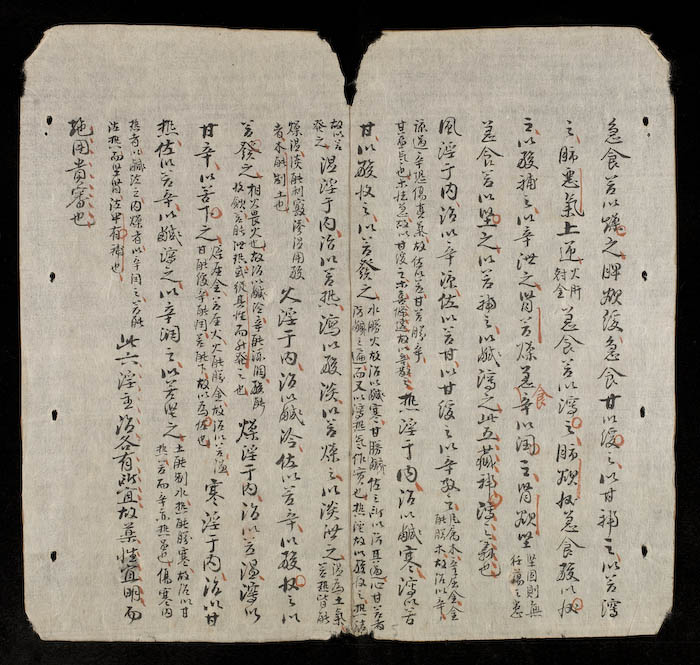 急食苦以燥之脾欲緩急食甘以緩之以甘補之以苦瀉
之肺惡氣上逆火肝射金急食苦以瀉之肺欲收急食酸以收
之以酸補之以辛泄之腎苦燥急食辛以潤之腎欲堅堅固則無狂蕩之患
急食苦以堅之以苦補之以鹹瀉之此五藏補瀉之義也
風淫于內治以辛涼佐以苦甘以甘緩之以辛散之風属木辛属金金能勝木故治以辛
涼過辛恐傷真氣故佐以苦甘苦勝辛甘益氣也木性急故以甘緩之木喜條達故以辛散之熱淫于內治以鹹寒瀉以苦
甘以酸收之以苦發之水勝火故治以鹹寒甘勝鹹佐之所以防其過
故以苦發之濕淫于內治以苦熱瀉以酸淡以苦燥之以淡泄之濕為土氣苦熱皆能
燥濕淡能利竅滲泄用酸者木能制土也火淫于內治以鹹冷佐以苦辛以酸收之以
苦發之相火畏火也故治以鹹冷辛能滌潤酸能收歛苦能泄熱或從其性而升發之也燥淫于內治以苦溫瀉以
甘辛以苦下之燥属金苦属火火能勝金故治以苦溫甘能緩辛能潤苦能下故以為佐也寒淫于內治以甘
熱佐以苦辛以鹹瀉之以辛潤之以苦堅之土能制水熱能勝寒故治以甘熱苦而辛亦熱品也傷寒內
熱者以鹹瀉之內燥者以辛潤之苦能泄熱而堅腎泄中有補也此六淫主治各有所宜故藥性宜明而
施用貴審也